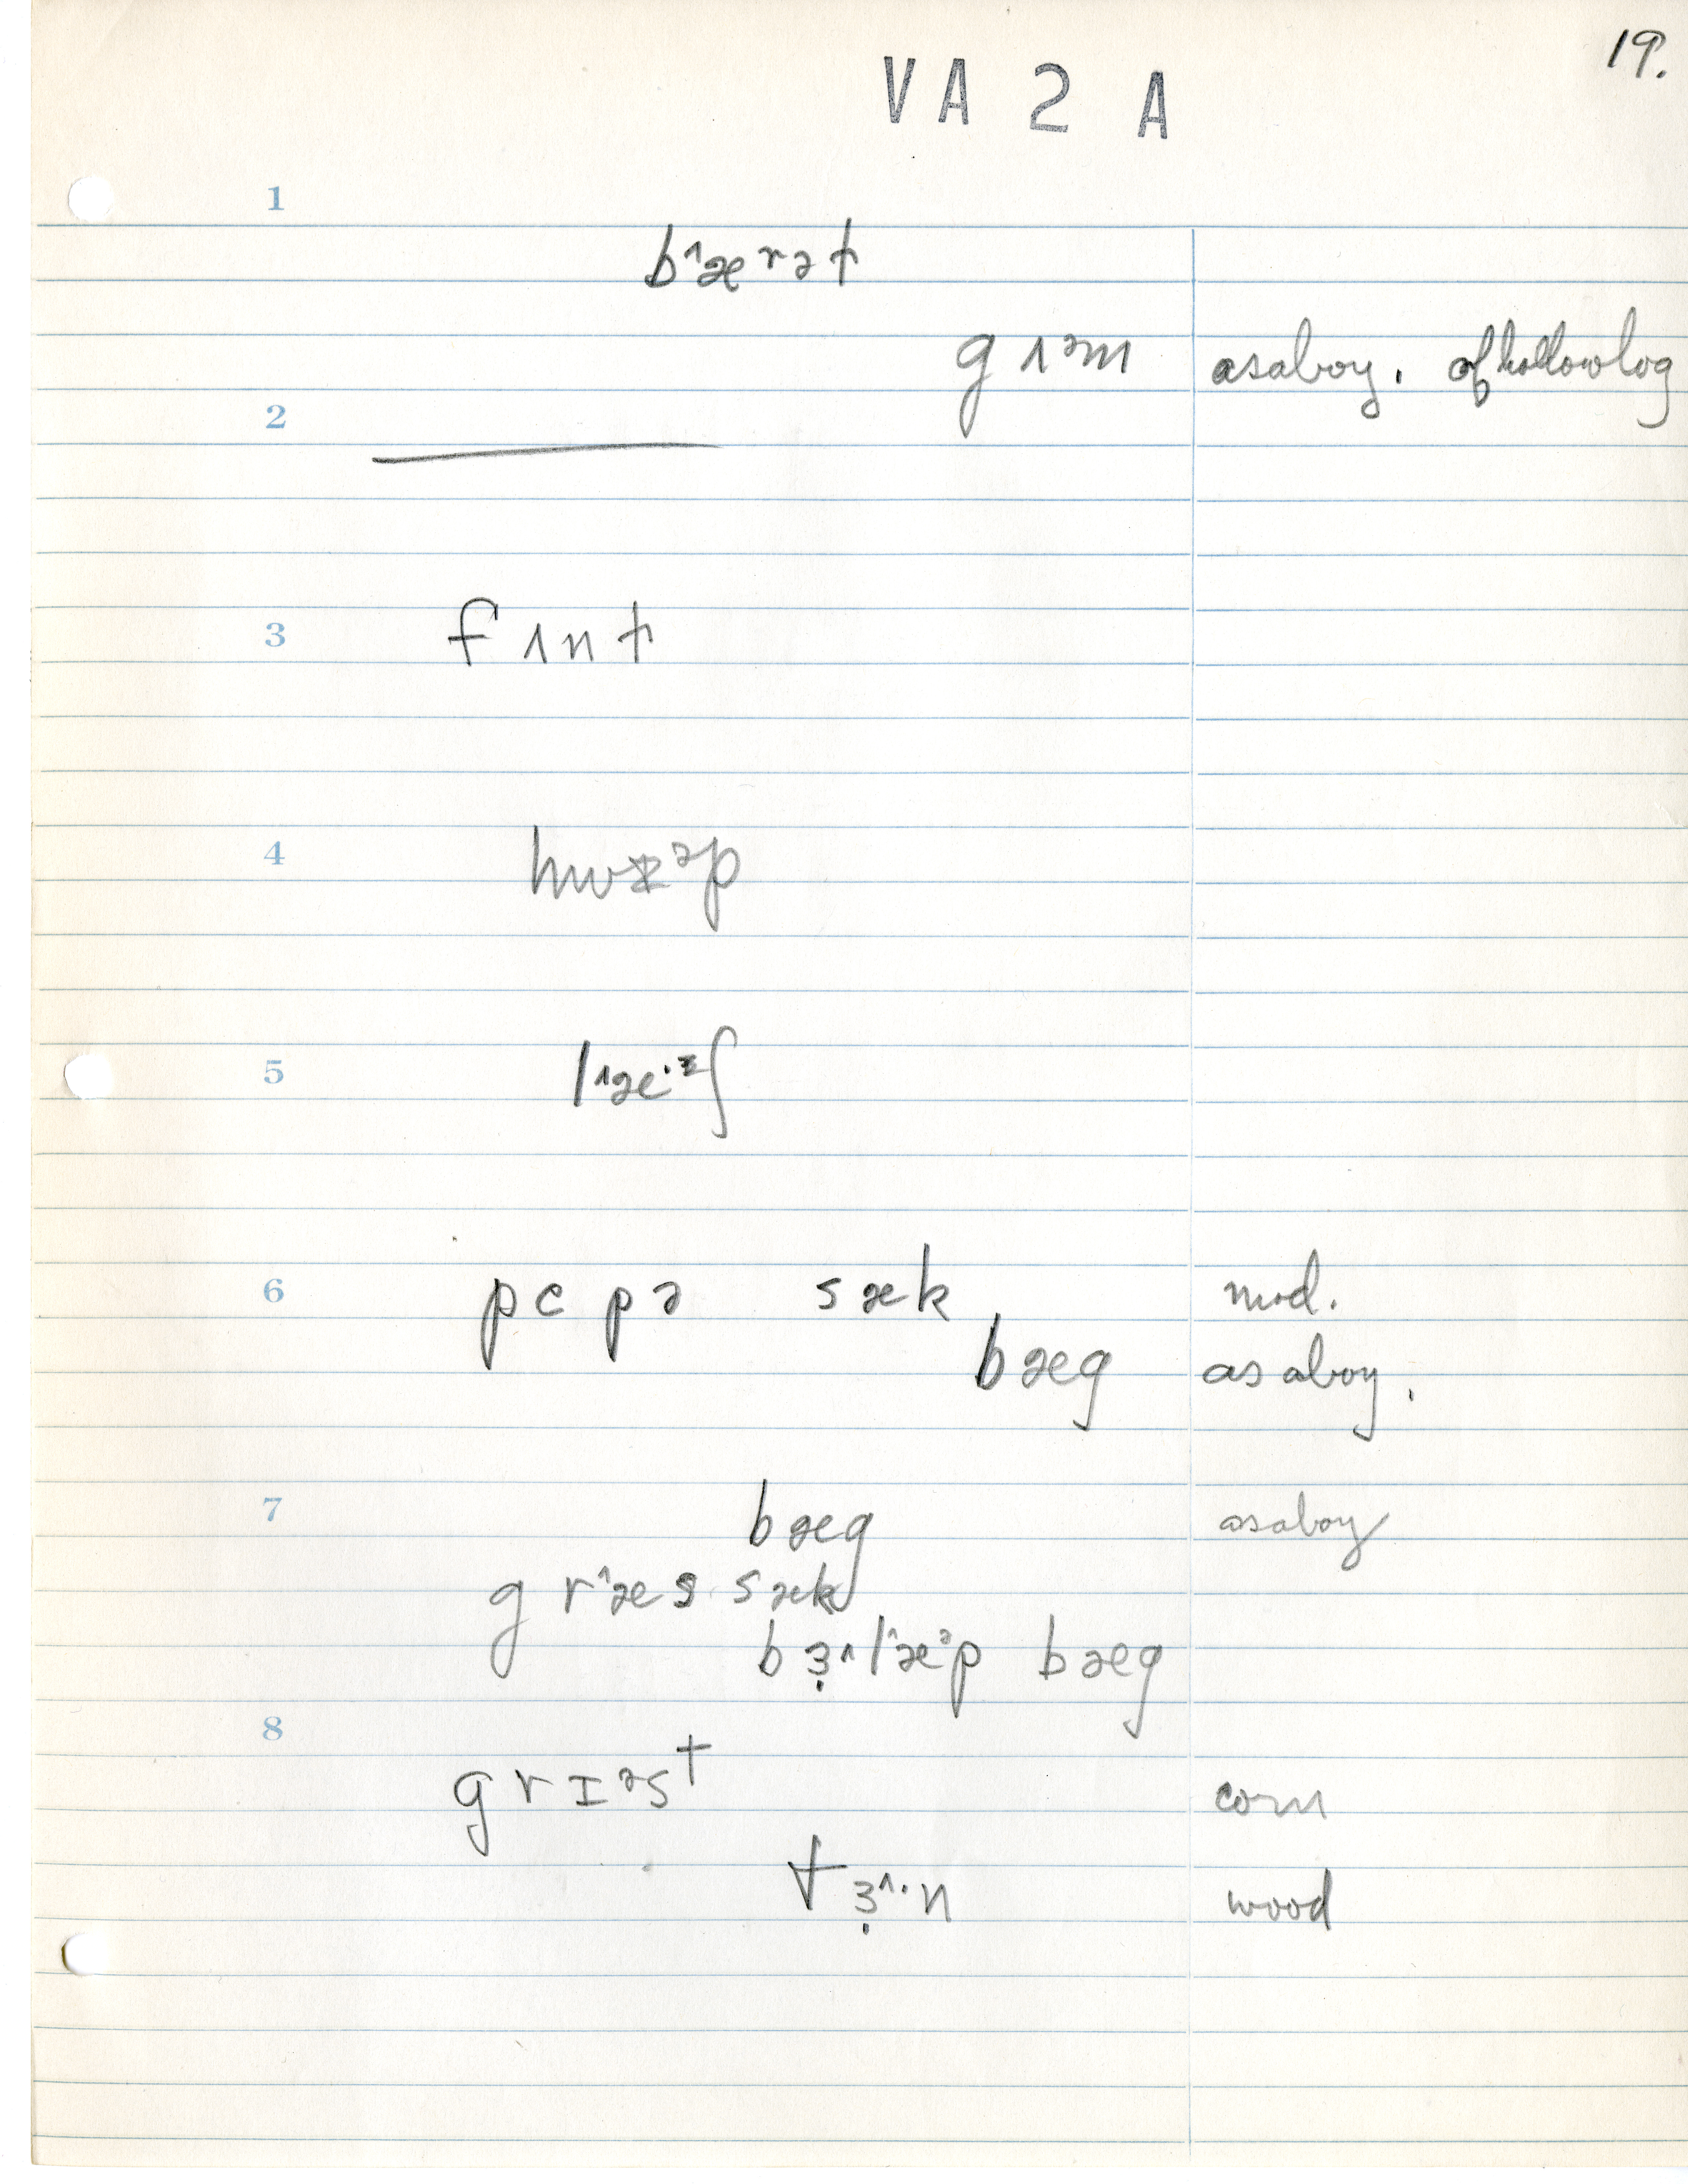 19.
VA 2 A
1
b˄æʳət
gɪᵊm asaboy. of hollow log
2
3
fɪnt
4
5
6
pepə sæk mod.
bæg as a boy.
7
bæg asaboy
gr˄æs sæk
bɜ̣˄l˄æᵊp bæg
8
grɪᵊst corn
tɜ̣˄·n wood